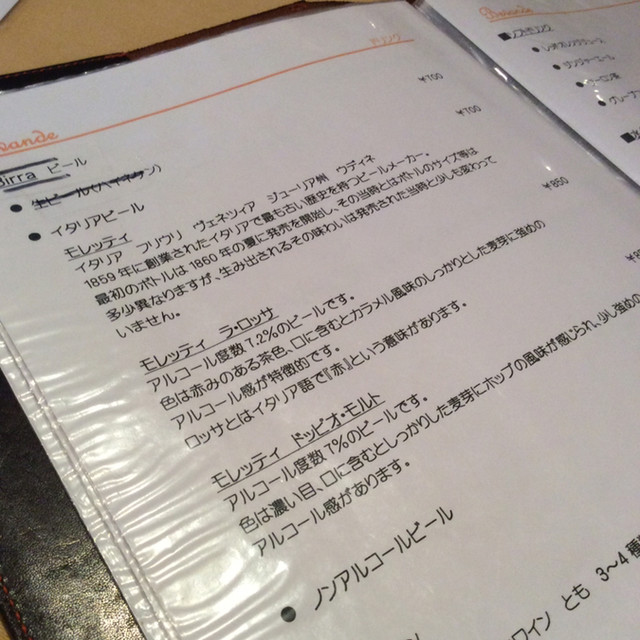 ドリンク
Birra ビール
● 生ビール(ハイネケン) ¥700
● イタリアビール
モレッティ ¥700
イタリア フリウリ ヴェネツィア ジューリア州 ウディネ
1859年に創業されたイタリアで最も古い歴史を持つビールメーカー。
最初のボトルは1860年の夏に発売を開始し、その当時とはボトルのサイズ等は
多少異なりますが、生み出されるその味わいは発売された当時と少しも変わって
いません。
モレッティ ラ・ロッサ ¥850
アルコール度数7.2%のビールです。
色は赤みのある茶色、口に含むとカラメル風味のしっかりとした麦芽に強めの
アルコール感が特徴的です。
ロッサとはイタリア語で『赤』という意味があります。
モレッティ ドッピオ・モルト
アルコール度数7%のビールです。
色は濃い目、口に含むとしっかりした麦芽にホップの風味が感じられ、少し強めの
アルコール感があります。
● ノンアルコールビール
ワイン とも 3~4種
Bevande